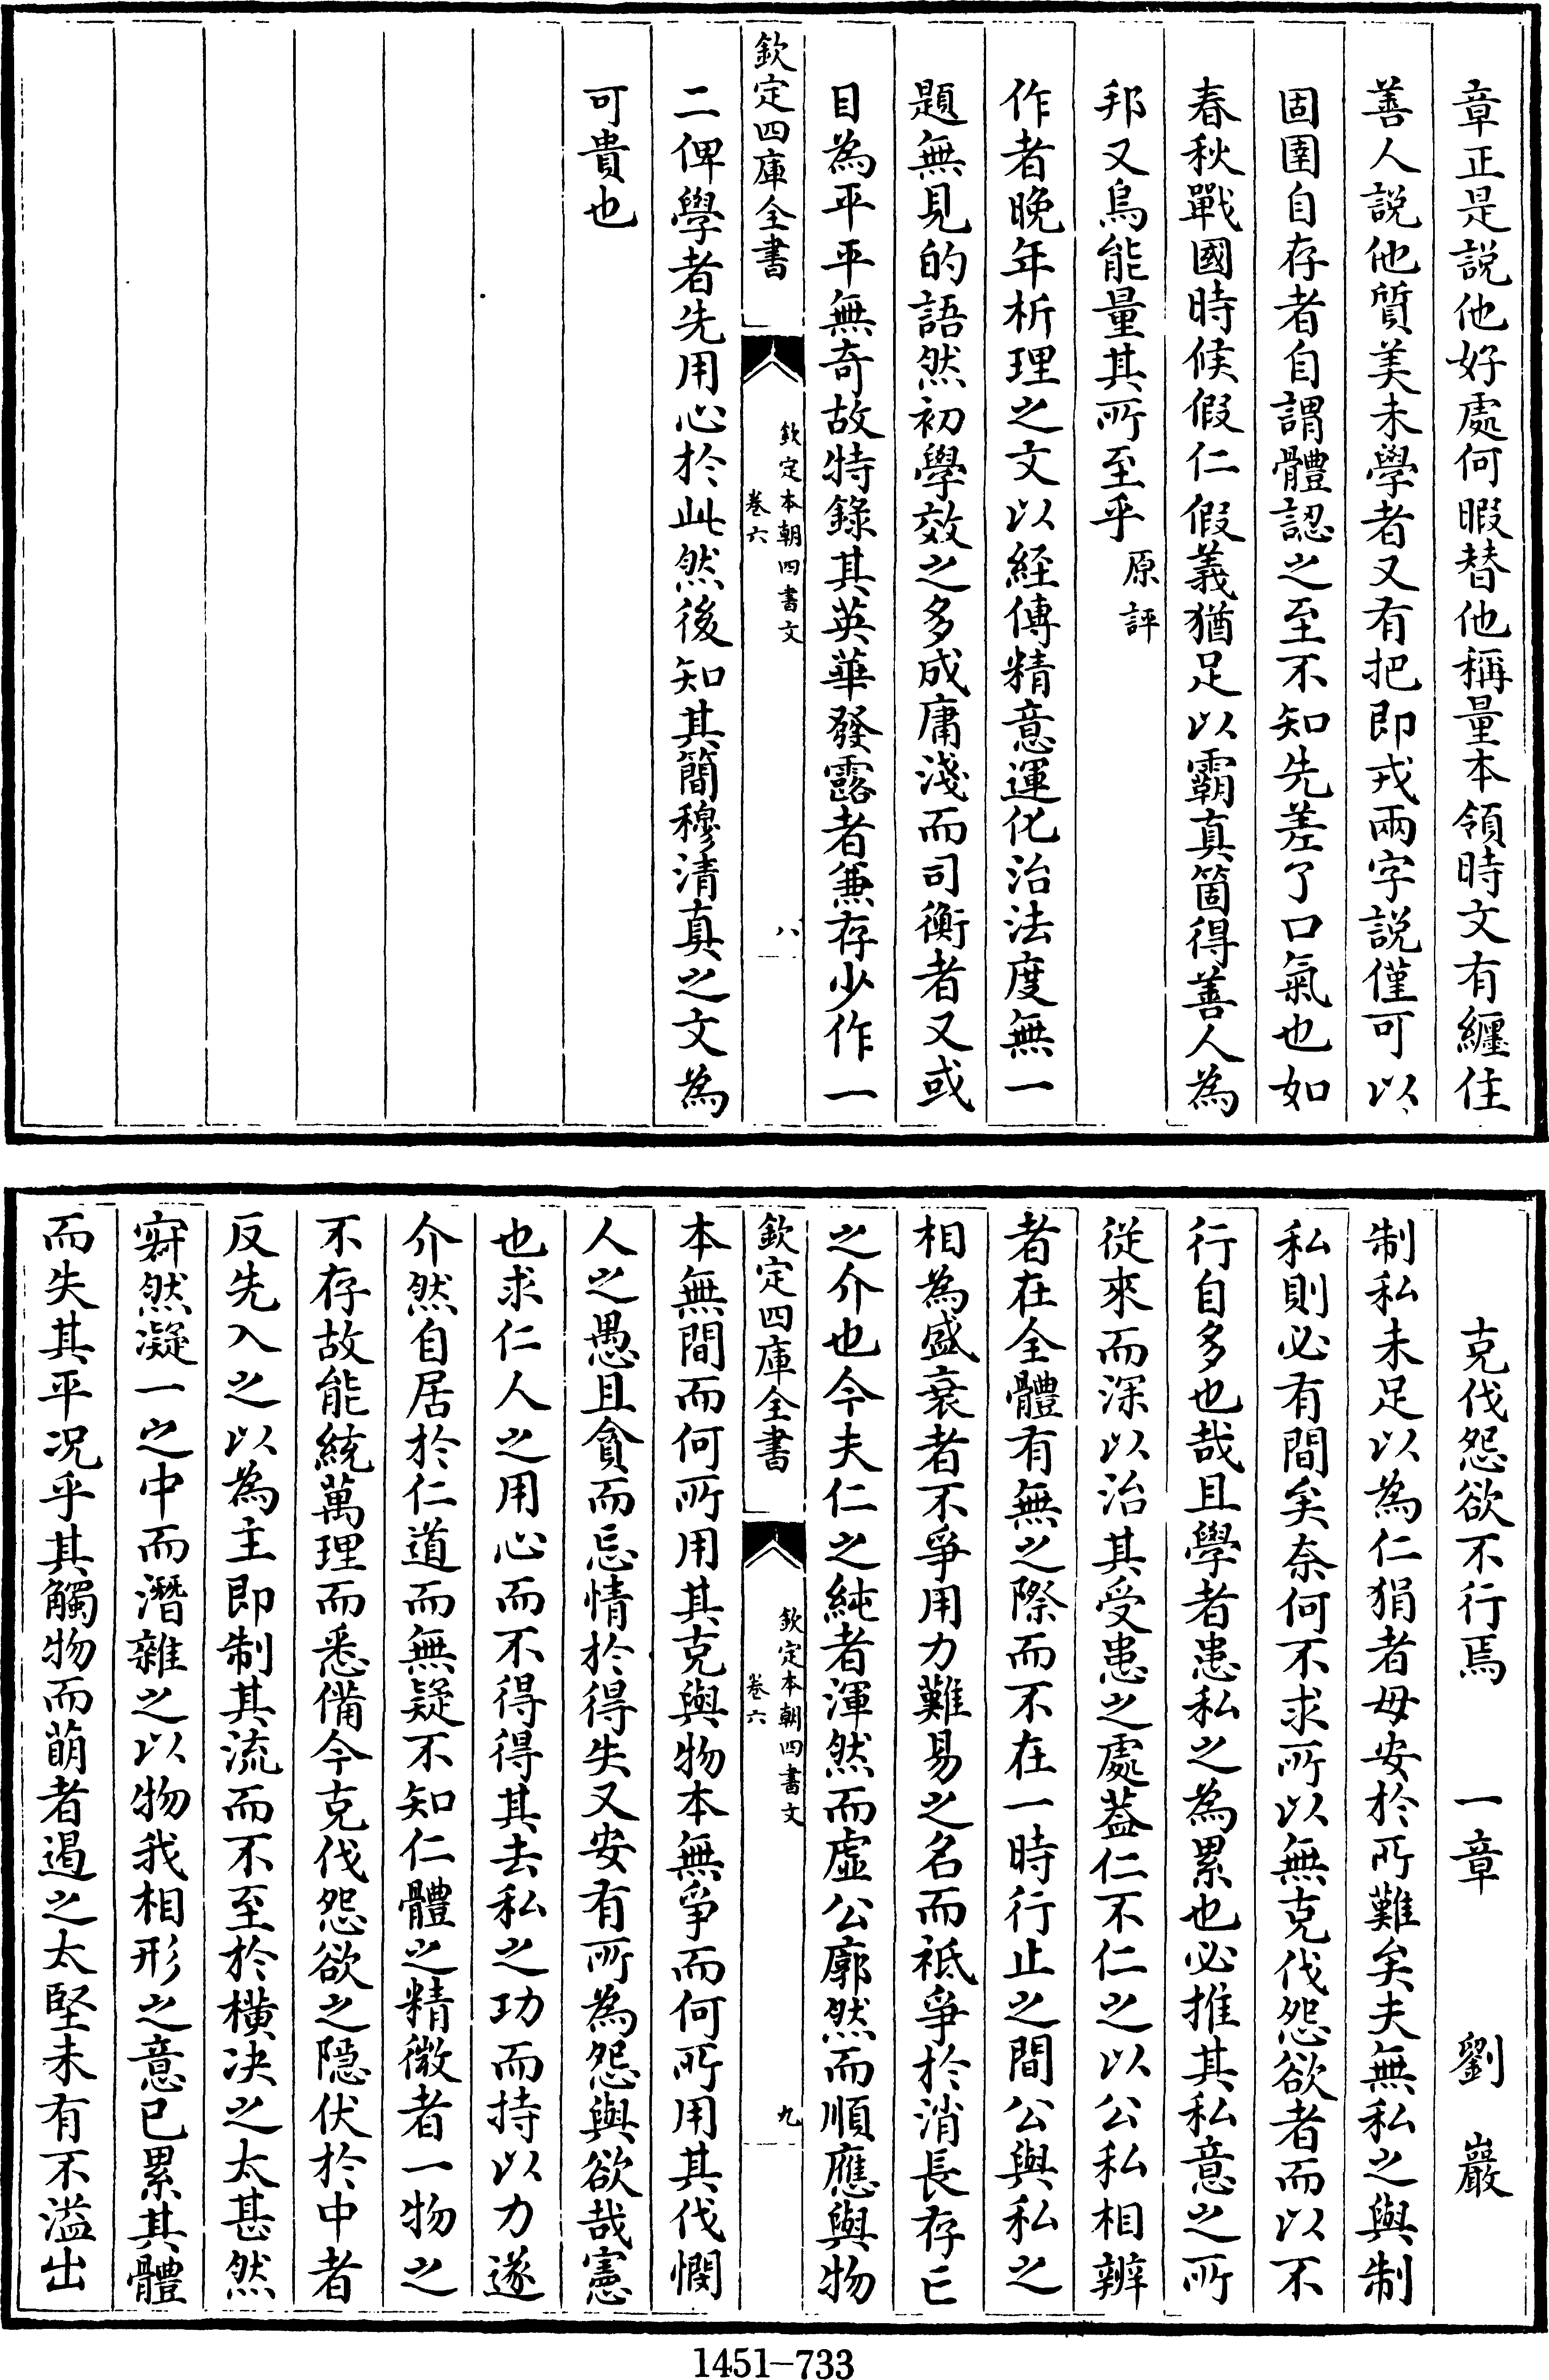 章正是説他好處何暇替他稱量本領時文有纏住
善人説他質美未學者又有把即戎兩字説僅可以
固圉自存者自謂體認之至不知先差了口氣也如
春秋戰國時候假仁假義猶足以霸真箇得善人為
邦又烏能量其所至乎原評
作者晚年析理之文以經傳精意運化治法度無一
題無見的語然初學效之多成庸淺而司衡者又或
目為平平無奇故特錄其英華發露者兼存少作一
欽定四庫全書
欽定本朝四書文
卷六
八
二俾學者先用心於此然後知其簡穆清真之文為
可貴也
克伐怨欲不行焉 一章 劉巖
制私未足以為仁狷者毋安於所難矣夫無私之與制
私則必有間矣奈何不求所以無克伐怨欲者而以不
行自多也哉且學者患私之為累也必推其私意之所
從來而深以治其受患之處蓋仁不仁之以公私相辨
者在全體有無之際而不在一時行止之間公與私之
相為盛衰者不爭用力難易之名而祗爭於消長存亡
之介也今夫仁之純者渾然而虛公廓然而順應與物
欽定四庫全書
欽定本朝四書文
卷六
九
本無間而何所用其克與物本無爭而何所用其伐憫
人之愚且貪而忘情於得失又安有所為怨與欲哉憲
也求仁人之用心而不得得其去私之功而持以力遂
介然自居於仁道而無疑不知仁體之精微者一物之
不存故能統萬理而悉備今克伐怨欲之隱伏於中者
反先入之以為主即制其流而不至於橫决之太甚然
寂然凝一之中而潛雜之以物我相形之意已累其體
而失其平况乎其觸物而萌者遏之太堅未有不溢出
1451-733